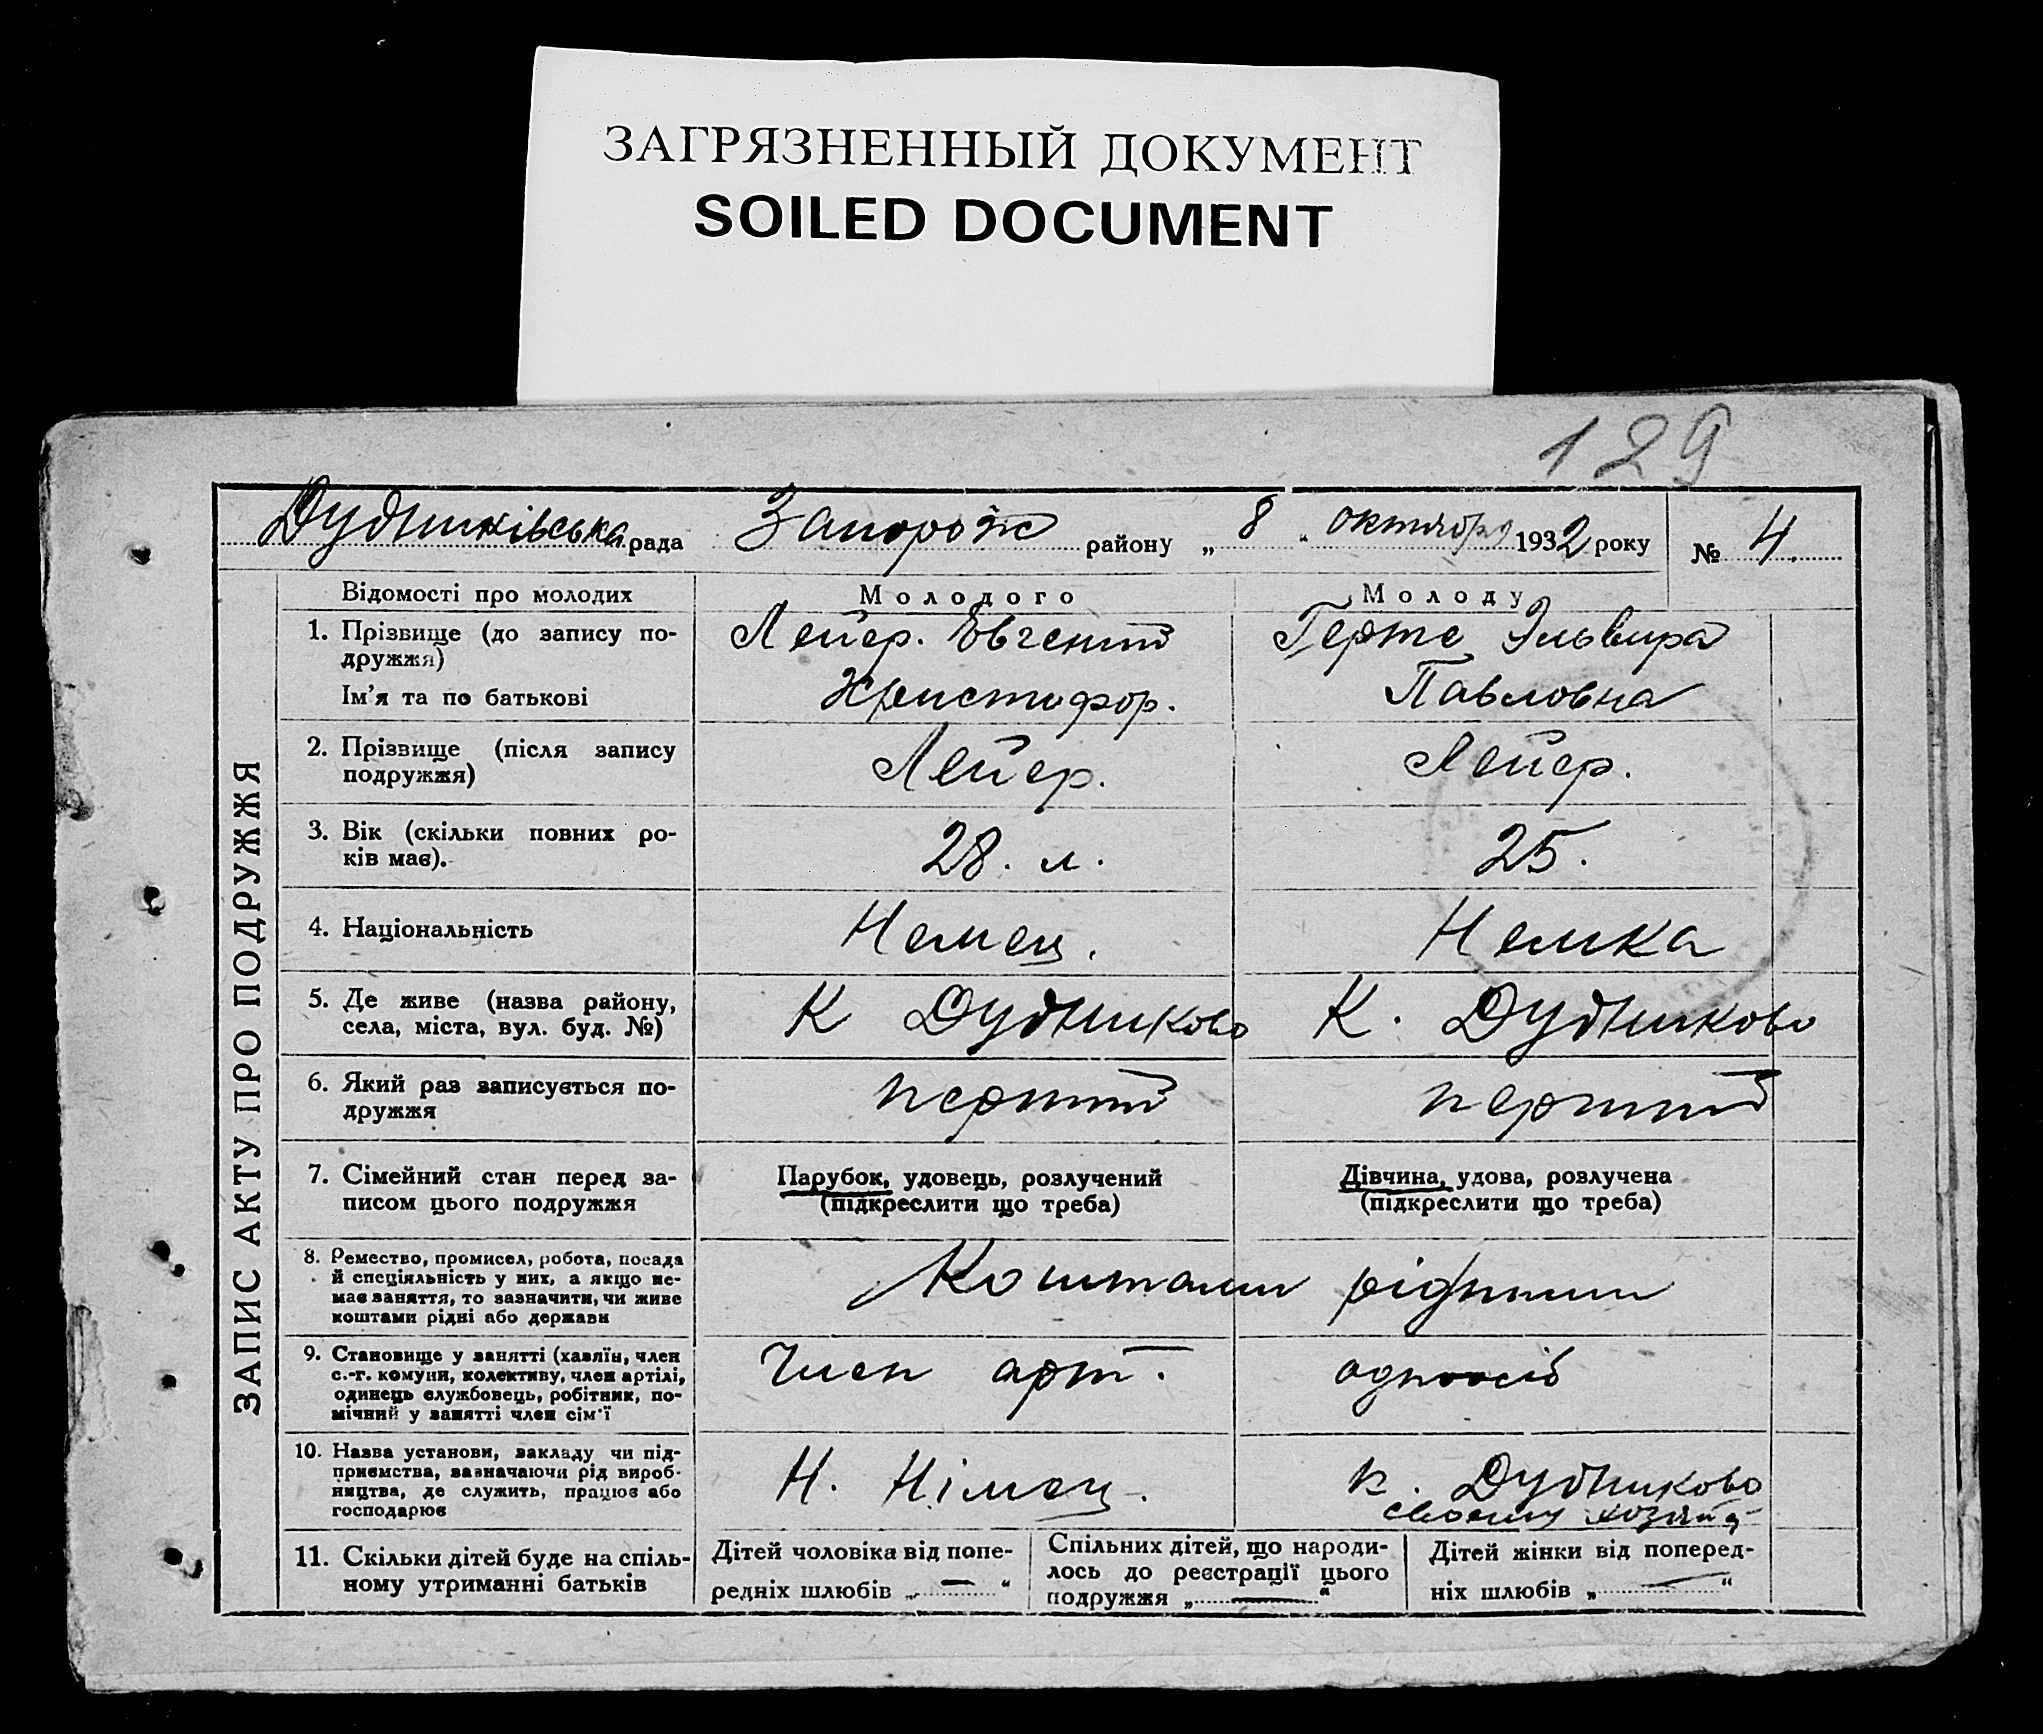 ЗАГРЯЗНЕННЫЙ ДОКУМЕНТ
SOILED DOCUMENT
129
Дудниківська рада Запорож району „ 8 " октября 1932 року № 4.
ЗАПИС АКТУ ПРО ПОДРУЖЖЯ
Відомості про молодих Молодого Молоду
1. Прізвище (до запису по- Лейер. Евгений Герте Эльвира
дружжя)
Ім'я та по батькові Христофор. Павловна
2. Прізвище (після запису Лейер. Лейер.
подружжя)
3. Вік (скільки повних ро- 28. л. 25.
ків має).
4. Національність Немец. Немка
5. Де живе (назва району, К Дудниково К. Дудниково
села, міста, вул. буд. №)
6. Який раз записується по- перший перший
дружжя
7. Сімейний стан перед за- Парубок, удовець, розлучений Дівчина, удова, розлучена
писом цього подружжя (підкреслити що треба) (підкреслити що треба)
8. Ремество, промисел, робота, посада
й спеціяльність у них, а якщо не- Коштами рідними
має заняття, то зазначити, чи живе
коштами рідні або держави
9. Становище у занятті (хазяїн, член Член арт. одноосіб
с.-г. комуни, колективу, член артілі,
одинець службовець, робітник, по-
мічний у занятті член сім'ї
10. Назва установи, закладу чи під- Н. Німец. к. Дудниково
приємства, зазначаючи рід вироб-
ництва, де служить, працює або своему хозяй
господарює
11. Скільки дітей буде на спіль- Дітей чоловіка від попе- Спільних дітей, що народи- Дітей жінки від поперед-
ному утриманні батьків редніх шлюбів „ — “ лось до реєстрації цього ніх шлюбів „ — “
подружжя „ — “